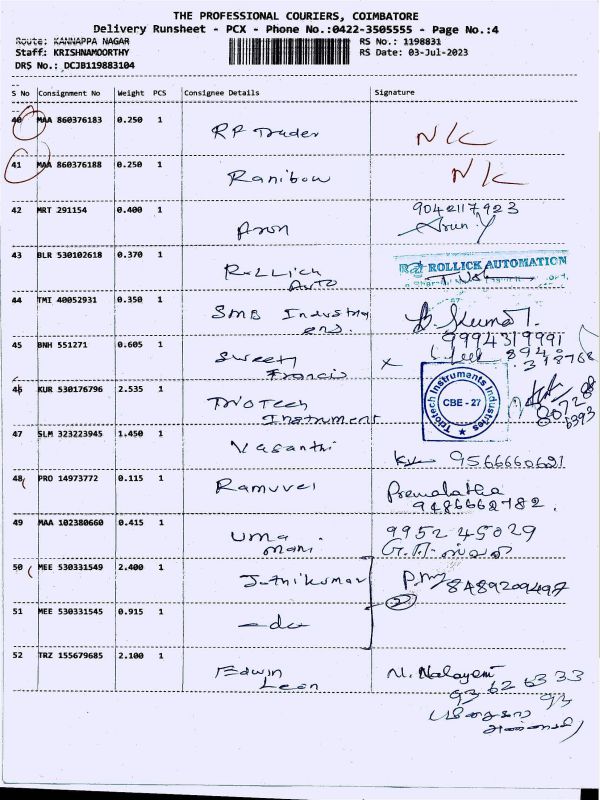 THE PROFESSIONAL COURIERS, COIMBATORE
Delivery Runsheet - PCX - Phone No.:0422-3505555 - Page No.:4
Route: KANNAPPA NAGAR RS No.: 1198831
Staff: KRISHNAMOORTHY RS Date: 03-Jul-2023
DRS No.: DCJB119883104
S No Consignment No Weight PCS Consignee Details Signature
40 MAA 860376183 0.250 1
RP Trader N/C
41 MAA 860376188 0.250 1
Ranibow N/C
42 MRT 291154 0.400 1 9042117923
Aron Arun.Y
43 BLR 530102618 0.370 1
Rollich ROLLICK AUTOMATION
Auto
44 TMI 40052931 0.350 1
SMB Industry B. Kumar.
45 BNH 551271 0.605 1 9994319991
Sweety
Francis
46 KUR 530176796 2.535 1
Triotech Triotech Instruments Industries
Instrument CBE - 27
47 SLM 323223945 1.450 1
Vasanthi 9566660621
48 PRO 14973772 0.115 1
Ramuvel Premalatha
9486662782.
49 MAA 102380660 0.415 1
Uma 9952 45029
mani
50 MEE 530331549 2.400 1
8489209497
51 MEE 530331545 0.915 1
-do-
52 TRZ 155679685 2.100 1
Edwin
Leon